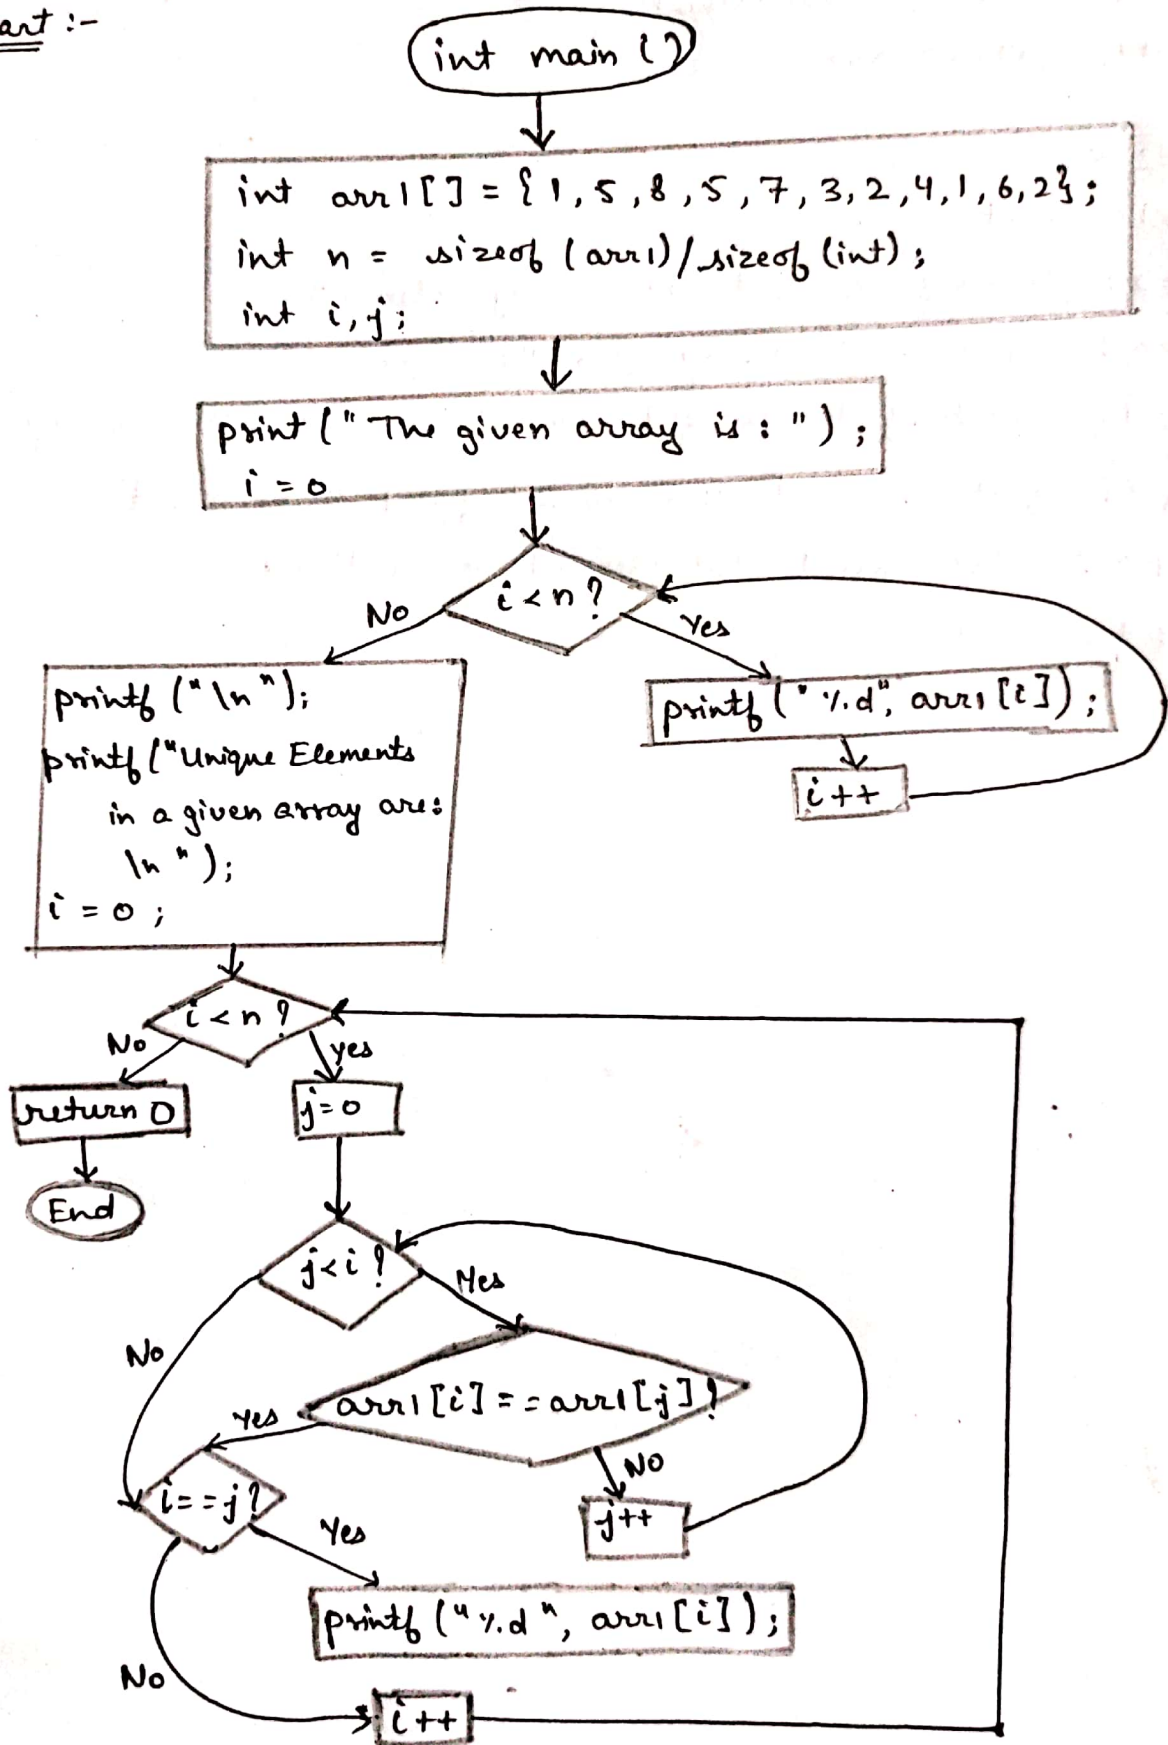 art :-
int main ()
int arr1[] = {1,5,8,5,7,3,2,4,1,6,2};
int n = sizeof(arr1)/sizeof(int);
int i,j;
print("The given array is : ");
i = 0
i<n?
No
Yes
printf("\n");
printf("Unique Elements
in a given array are:
\n");
i = 0 ;
printf("%d", arr1[i]);
i++
i<n?
No
yes
return 0
j=0
End
j<i?
Yes
No
arr1[i]==arr1[j]?
Yes
No
i==j?
j++
Yes
printf("%d", arr1[i]);
No
i++